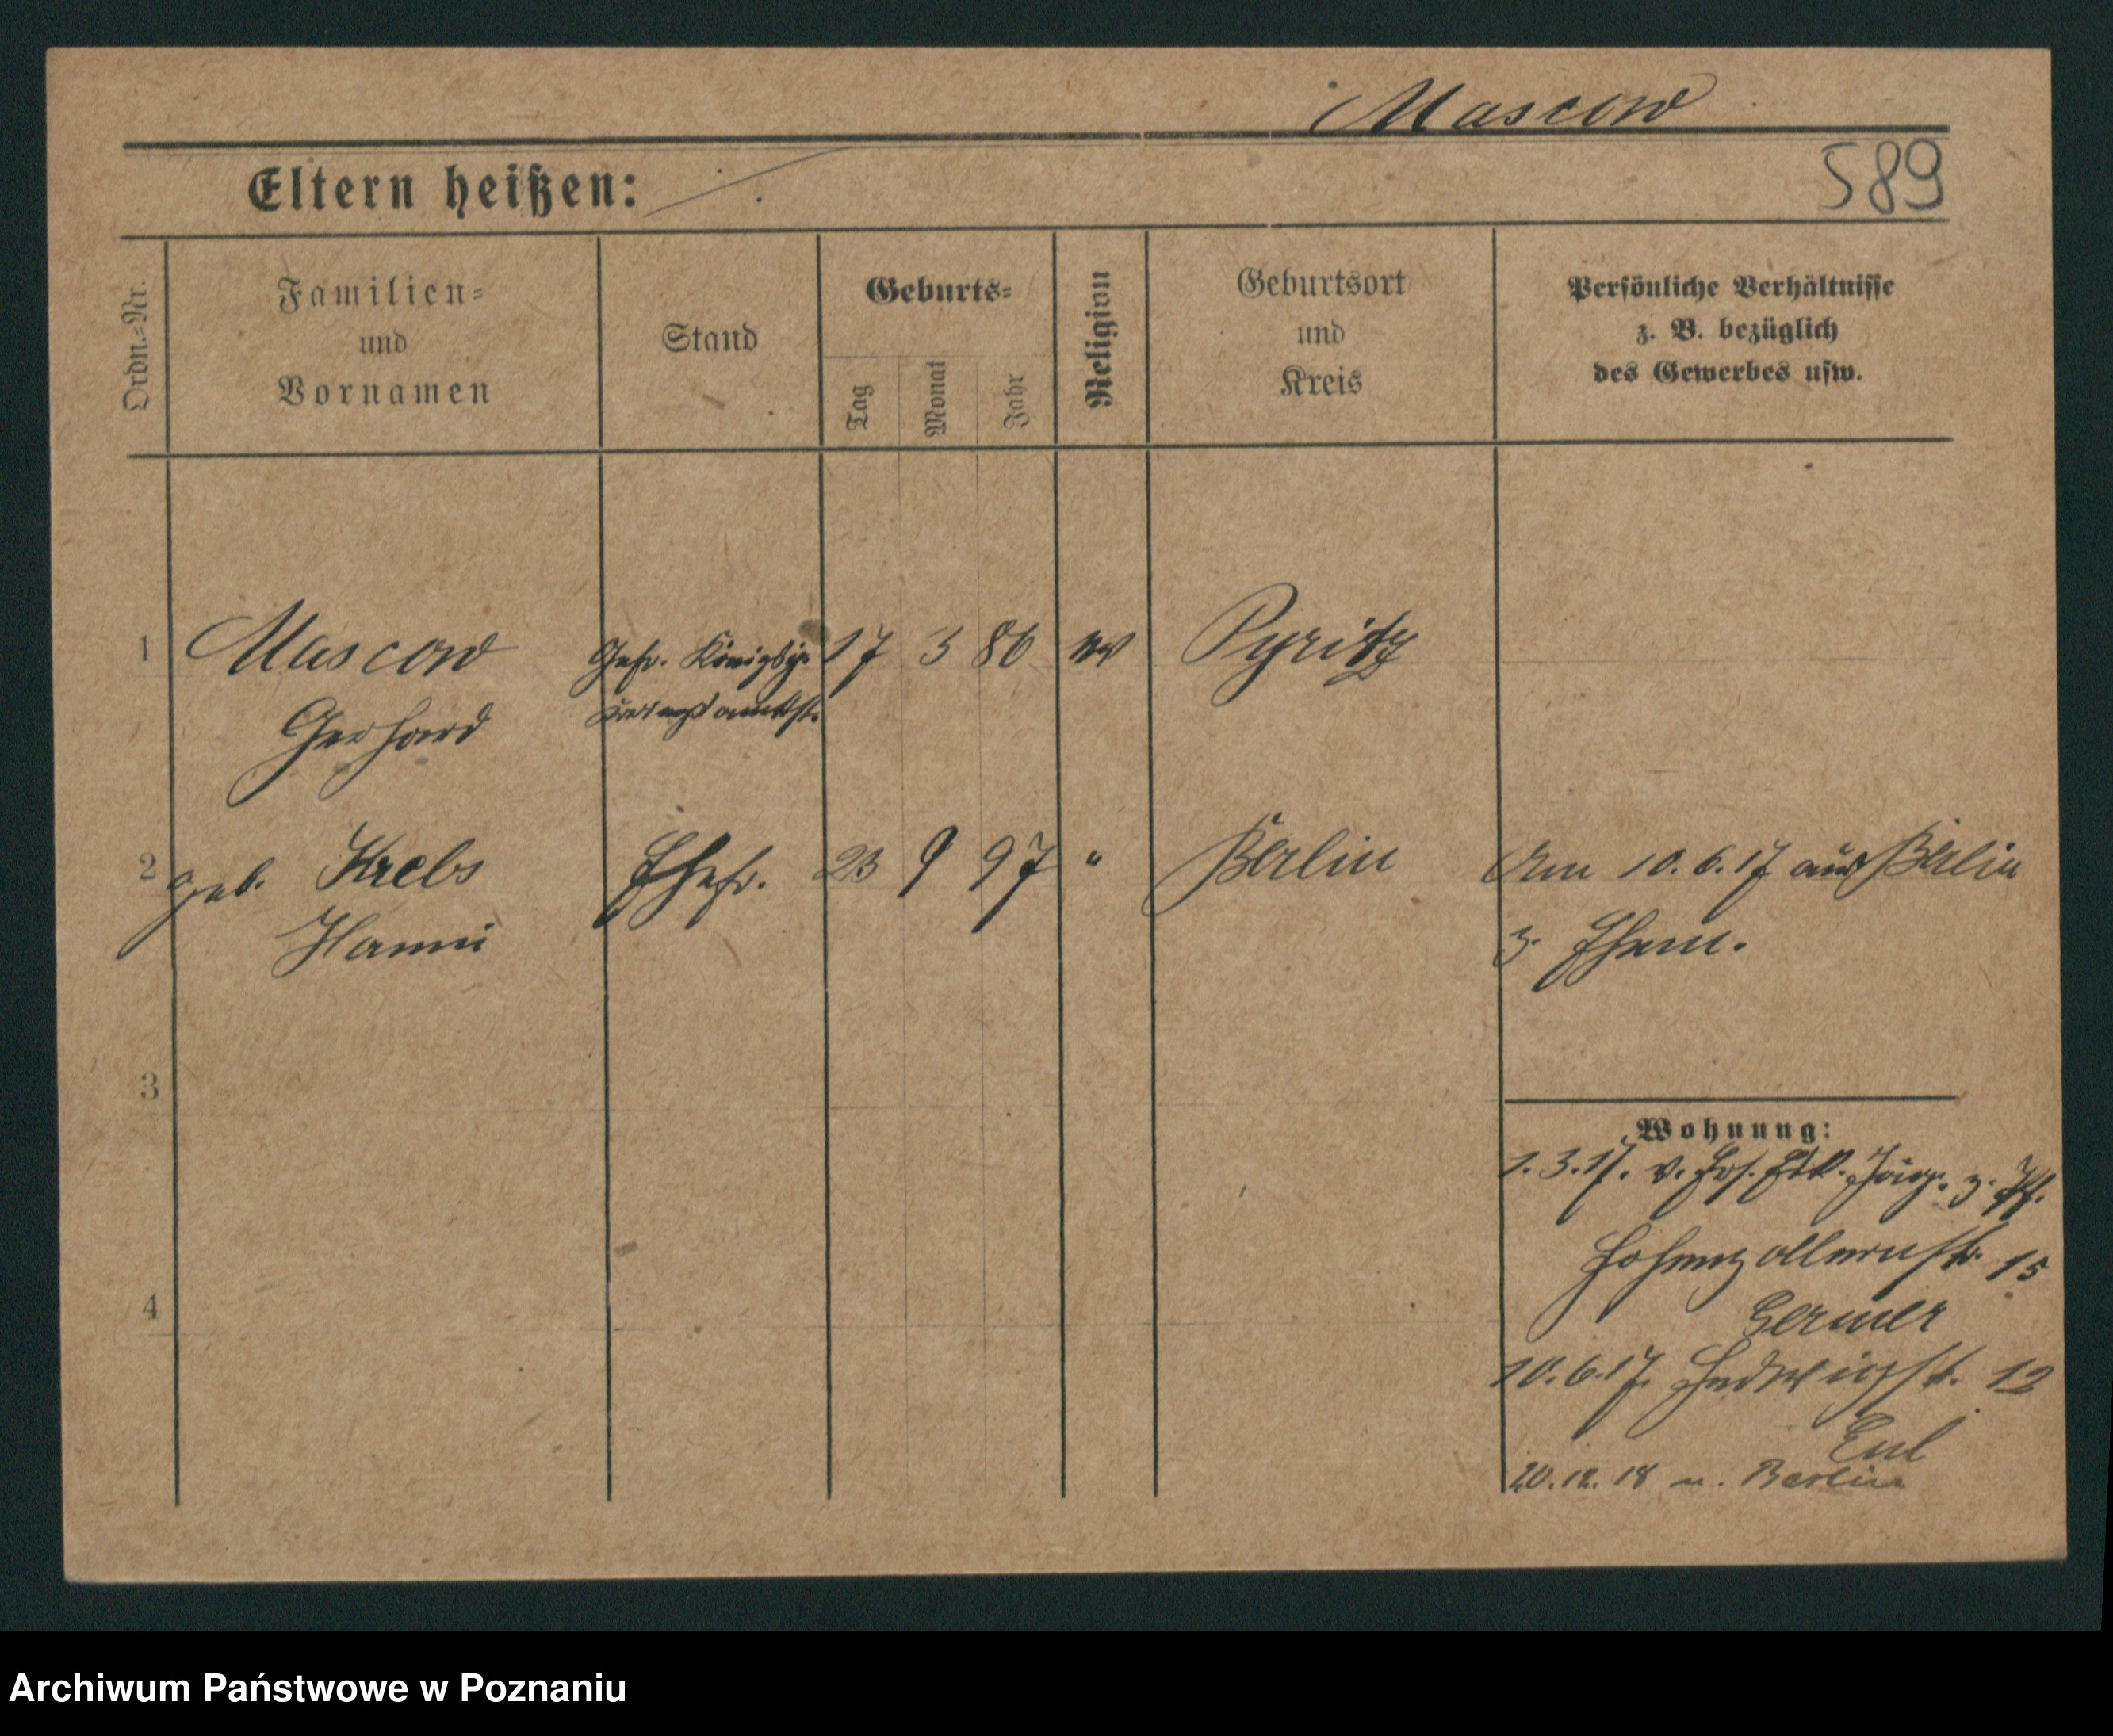 Mascow
589
Eltern heißen:
Ordn.=Nr.
Familien=
und
Vornamen
Stand
Geburts=
Tag
Monat
Jahr
Religion
Geburtsort
und
Kreis
Persönliche Verhältnisse
z. B. bezüglich
des Gewerbes usw.
1 Mascow 17 3 86 ev Pyritz
Gerhard
2 geb. Krebs Ehefr. 23 9 97 " Berlin Am 10.6.17 aus Berlin
Hanni z. Ehem.
3
Wohnung:
1.3.17. v.
Hohenzollernstr. 15
4
Germer
10.6.17. Hedwigstr. 12
Eul
20.12.18 n. Berlin
Archiwum Państwowe w Poznaniu